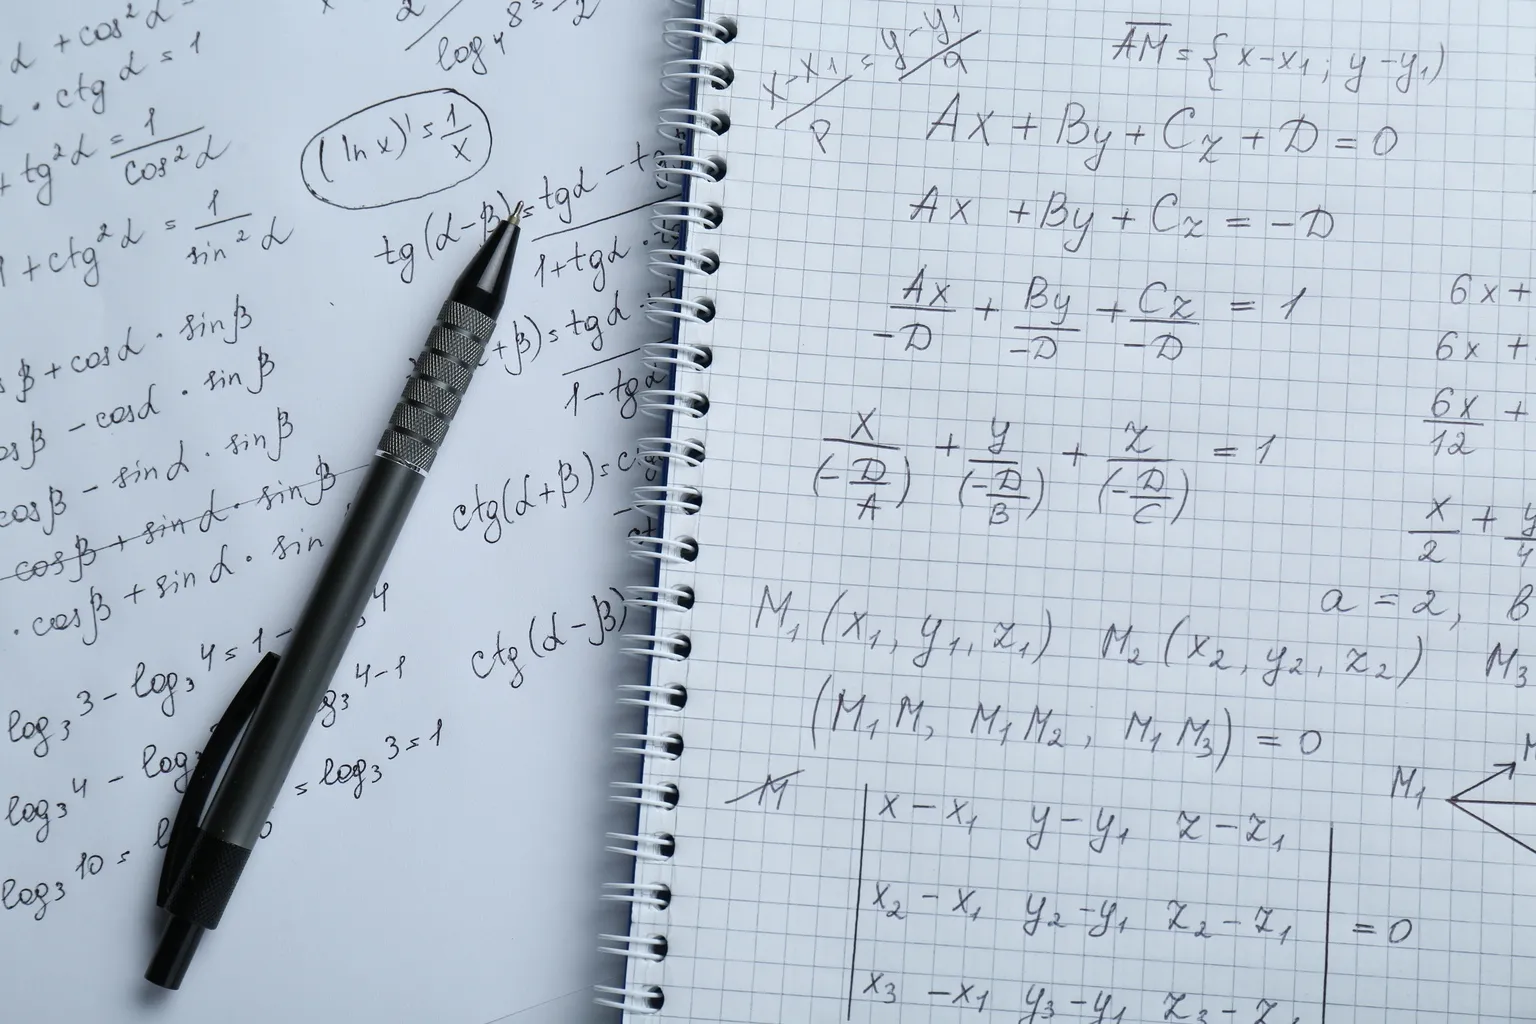 α + cos²α =
α · ctg α = 1
+ tg²α = 1/cos²α
1 + ctg²α = 1/sin²α
β + cosα · sinβ
cosβ − cosα · sinβ
cosβ − sinα · sinβ
cosβ + sinα · sinβ
· cosβ + sinα · sin
log₃3 − log₃4 = 1 −
log₃4 − log₃
log₃10 =
log₄8 =
(ln x)' = 1/x
tg(α−β) = tgα − t / 1 + tgα ·
+β) = tgα / 1 − tgα
ctg(α+β) = c
ctg(α−β)
4 − 1
= log₃3 = 1
x−x₁/P = y−y₁/a
AM = {x−x₁; y−y₁)
Ax + By + Cz + D = 0
Ax + By + Cz = −D
Ax/−D + By/−D + Cz/−D = 1
x/(−D/A) + y/(−D/B) + z/(−D/C) = 1
6x +
6x +
6x/12 +
x/2 + y/4
a = 2, B
M₁(x₁, y₁, z₁) M₂(x₂, y₂, z₂) M₃
(M₁M, M₁M₂, M₁M₃) = 0
M
M₁
x − x₁ y − y₁ z − z₁
x₂ − x₁ y₂ − y₁ z₂ − z₁ = 0
x₃ − x₁ y₃ − y₁ z₃ − z